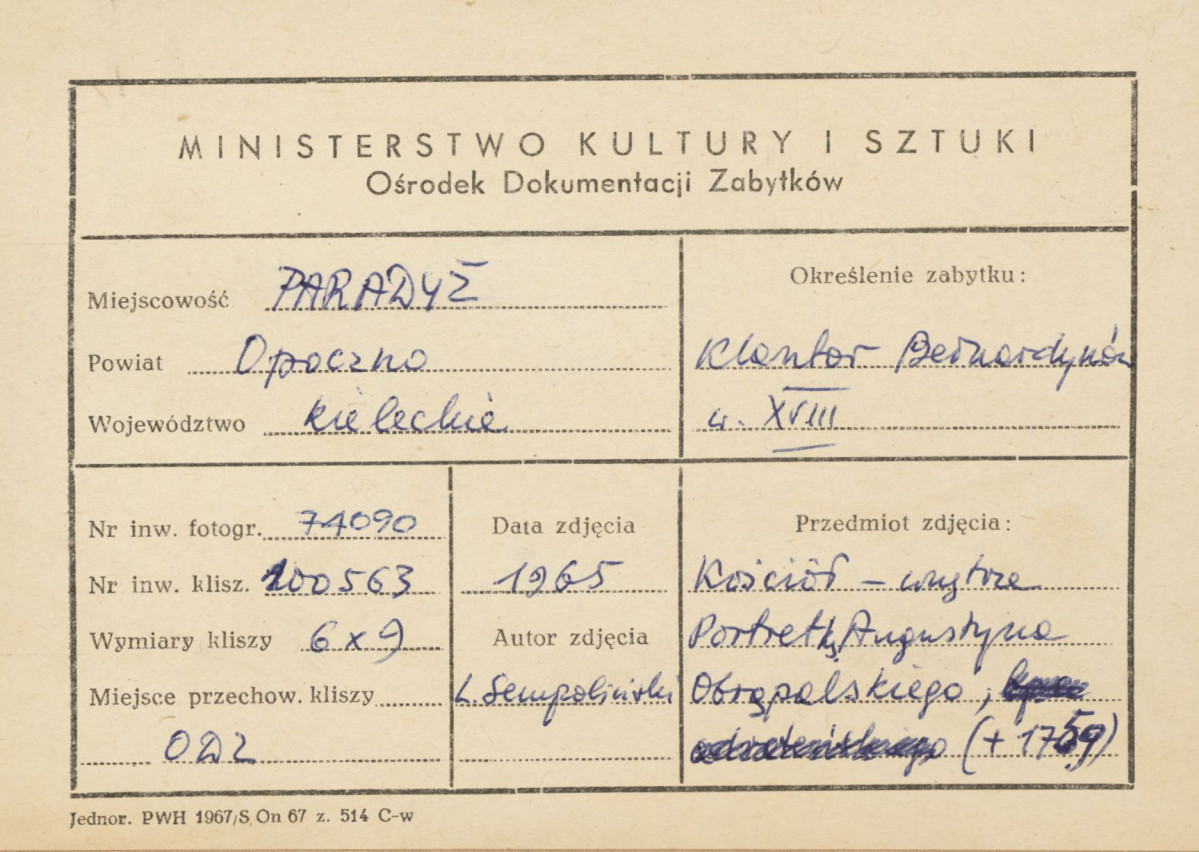 MINISTERSTWO KULTURY I SZTUKI
Ośrodek Dokumentacji Zabytków
Miejscowość PARADYŻ
Powiat Opoczno
Województwo kieleckie
Określenie zabytku:
Klasztor Bernardynów
w. XVIII
Nr inw. fotogr. 74090
Nr inw. klisz. 100563
Wymiary kliszy 6x9
Miejsce przechow. kliszy
ODZ
Data zdjęcia
1965
Autor zdjęcia
L. Sempoliński
Przedmiot zdjęcia:
Kościół – wnętrze
Portret ks. Augustyna
Obrąpalskiego,
(+ 1759)
Jednor. PWH 1967/S On 67 z. 514 C-w